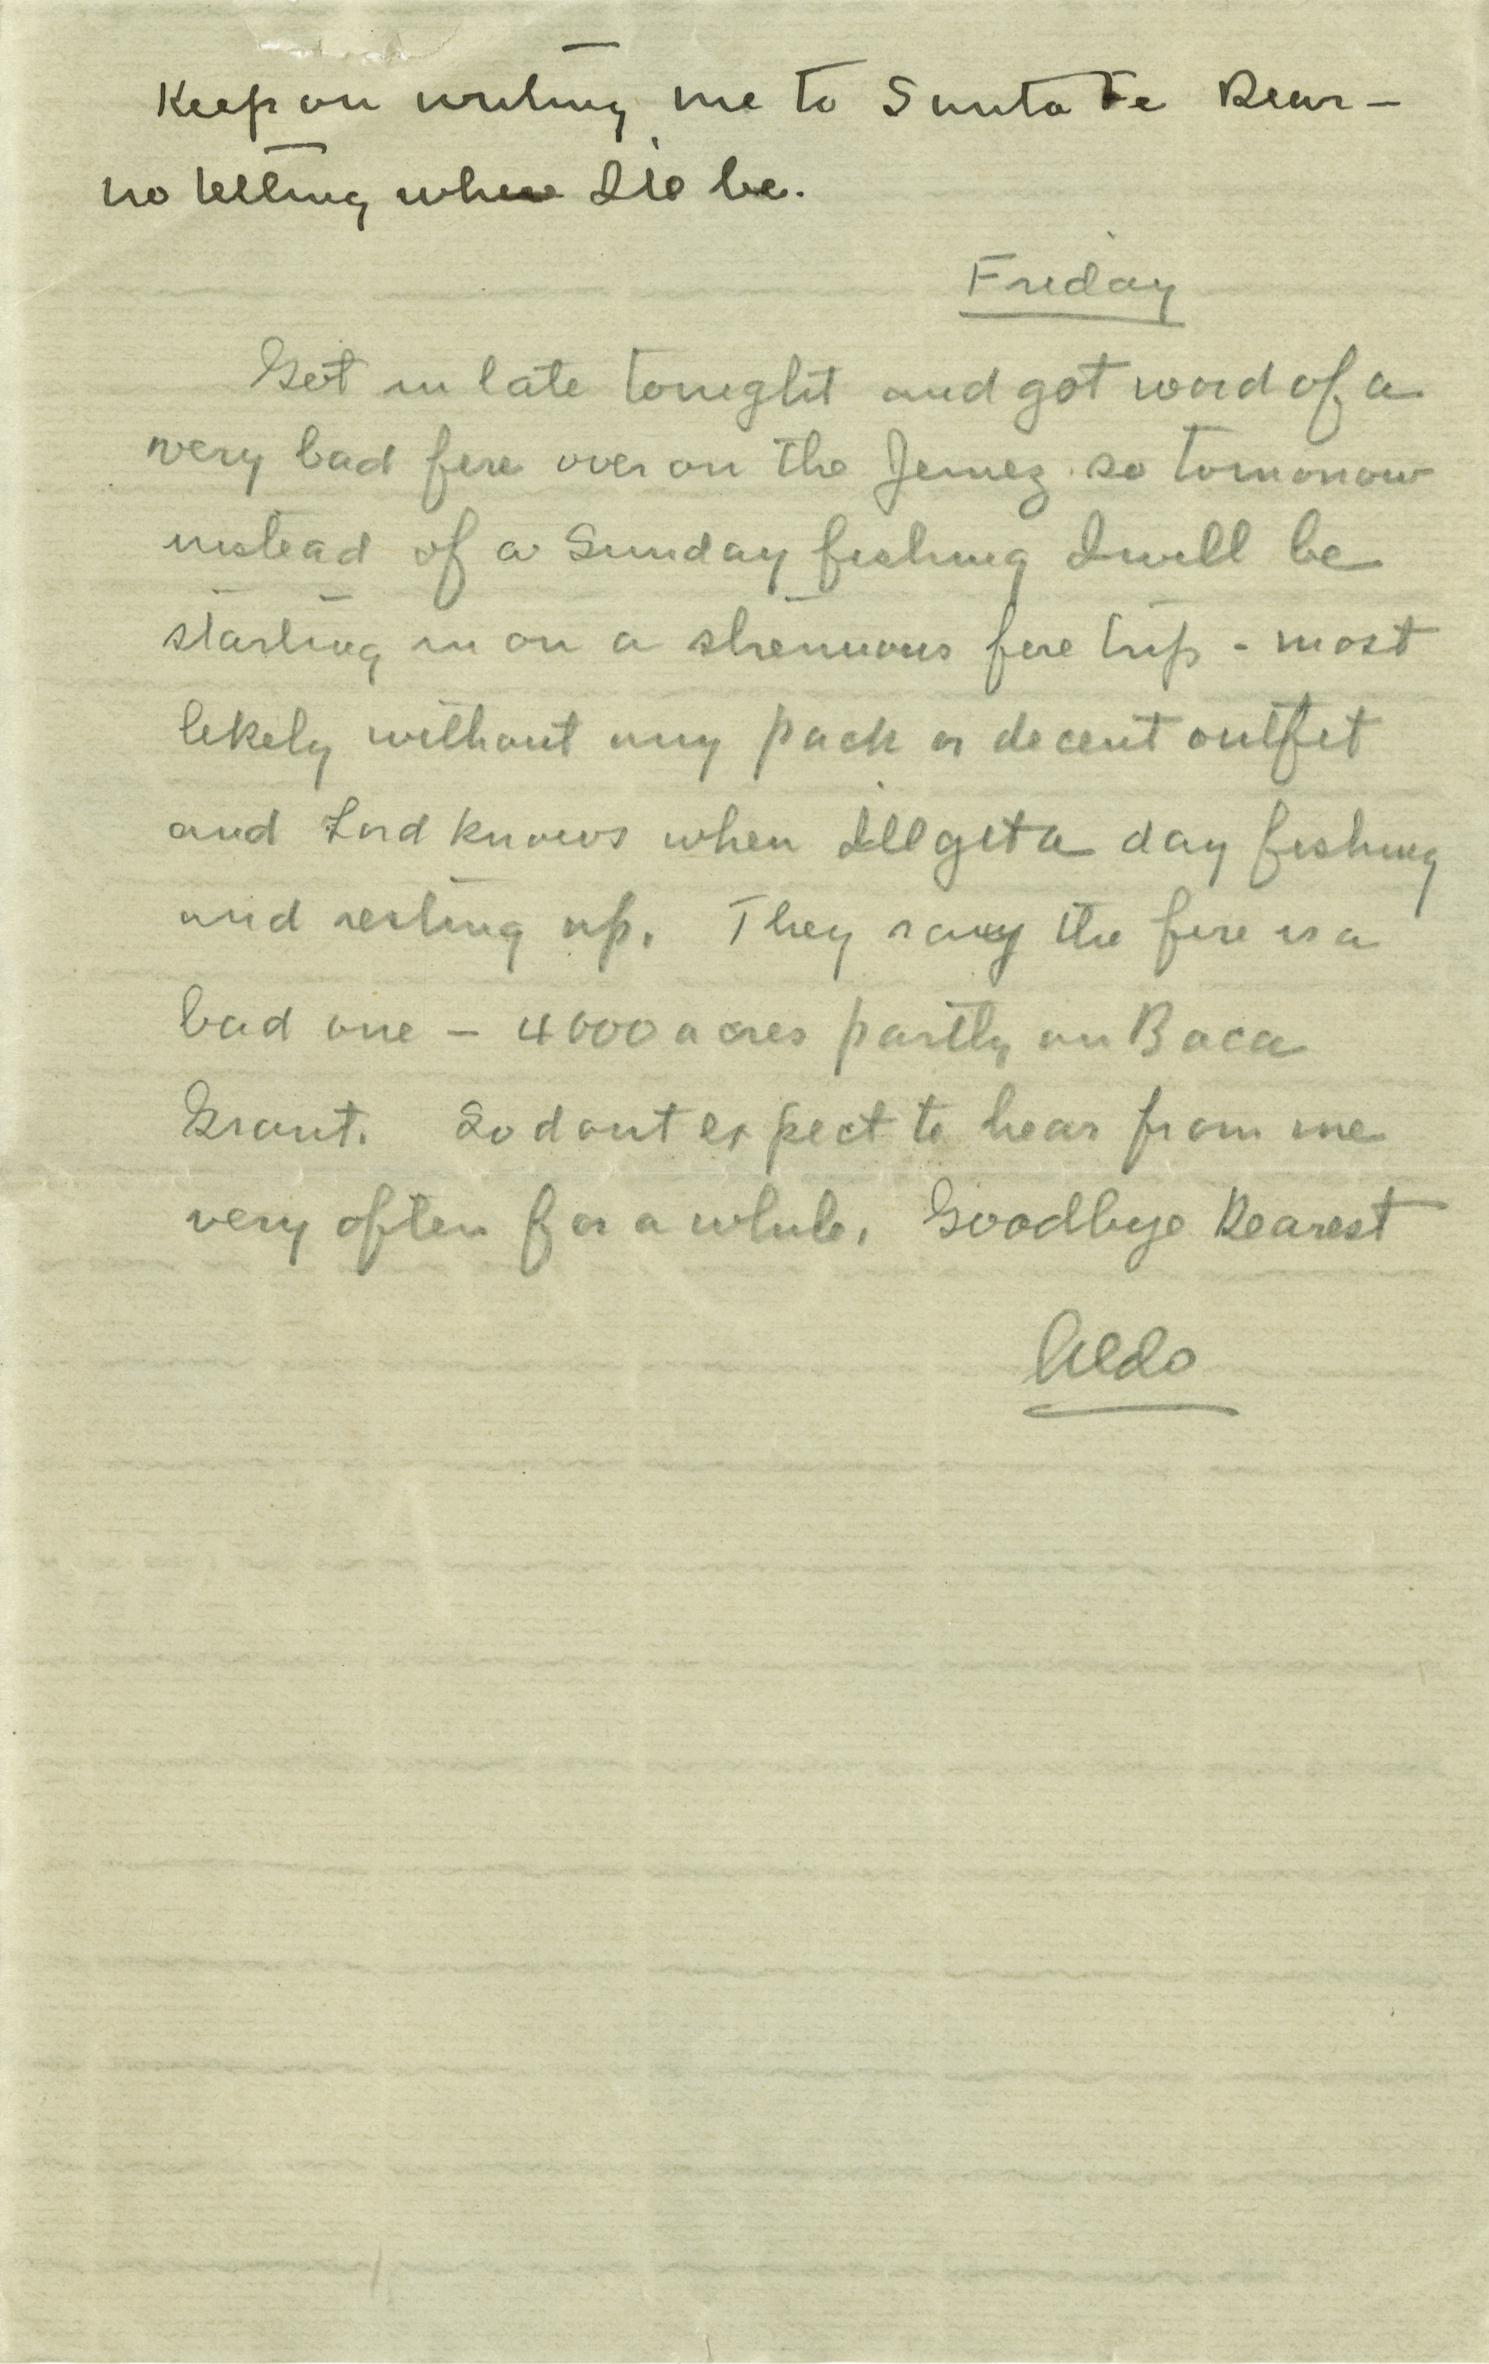 Keep on writing me to Santa Fe Dear –
no telling where I'll be.
Friday
Got in late tonight and got word of a
very bad fire over on the Jemez so tomorrow
instead of a Sunday fishing I will be
starting in on a strenuous fire trip - most
likely without any pack or decent outfit
and Lord knows when Ill get a day fishing
and resting up. They say the fire is a
bad one – 4000 acres partly on Baca
Grant. So dont expect to hear from me
very often for a while. Goodbye Dearest
Aldo